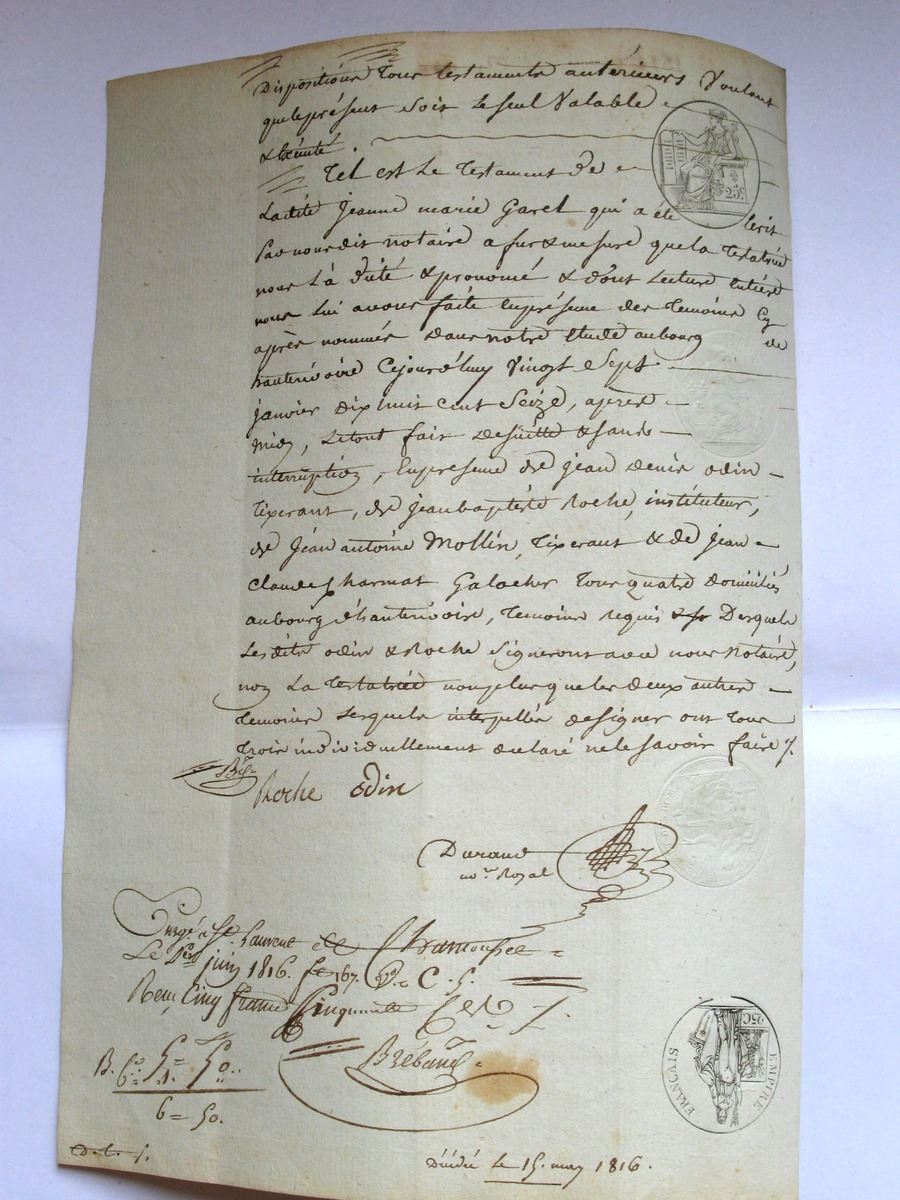 Dispositions Tous testaments antérieurs Voulant
que le présent soit le seul Valable
& Exécuté.
Tel est Le Testament de
Ladite Jeanne marie Garel qui a été Ecrit
Par nous dit notaire a fur & mesure que la Testatrice
nous L'à dicté & prononcé & dont Lecture Entiere
nous Lui avons faite En présence des Temoins Cy
après nommés dans notre Etude au bourg de
hauterivoire Cejourd'huy Vingt Sept
janvier dix huit cent Seize, après
midy, Le tout fait de suitte & sans
interruption, En presence de jean denis odin
Tixerant, de jean baptiste Roche, instituteur,
de Jean antoine Mollin, Tixerant & de jean
claude Charmat Galocher Tous quatre domiciliés
au bourg d'hauterivoire, Temoins requis & Desquels
Lesdits odin & Roche Signeront avec nous Notaire,
non La Testatrice non plus que les deux autres
Temoins Lesquels interpellés de signer ont Tous
Trois individuellement declaré ne le savoir faire
Roche odin
Durand
no.re Royal
Enrgé a St Laurent de Chamousset
Le 1er juin 1816. fo 167. Vo. C. 5.
Reçu Cinq francs Cinquante
Brébant
5 = 50
6 = 50.
Décédée Le 15. may 1816.
25c.
EMPIRE
FRANÇAIS
25C